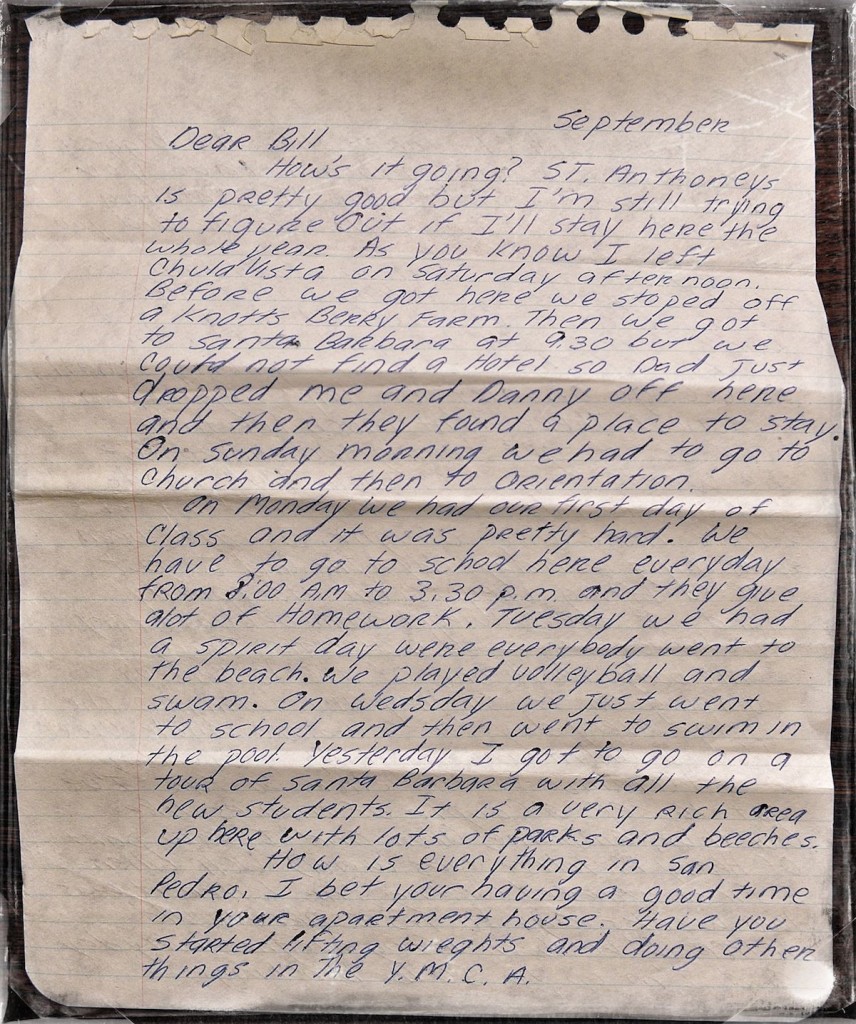 September
Dear Bill
How's it going? ST. Anthoneys
is pretty good but I'm still trying
to figure out if I'll stay here the
whole year. As you know I left
Chula Vista on Saturday afternoon.
Before we got here we stoped off
a Knotts Berry Farm. Then we got
to Santa Barbara at 9.30 but we
could not find a Hotel so Dad just
dropped me and Danny off here
and then they found a place to stay.
On Sunday morning we had to go to
Church and then to Orientation.
On Monday we had our first day of
class and it was pretty hard. We
have to go to school here everyday
from 8:00 AM to 3.30 p.m. and they give
alot of Homework. Tuesday we had
a spirit day were everybody went to
the beach. We played volleyball and
swam. On Wedsday we just went
to school and then went to swim in
the pool. Yesterday I got to go on a
tour of Santa Barbara with all the
new students. It is a very rich area
up here with lots of parks and beeches.
How is everything in San
Pedro, I bet your having a good time
in your apartment house. Have you
started lifting wieghts and doing other
things in The Y.M.C.A.